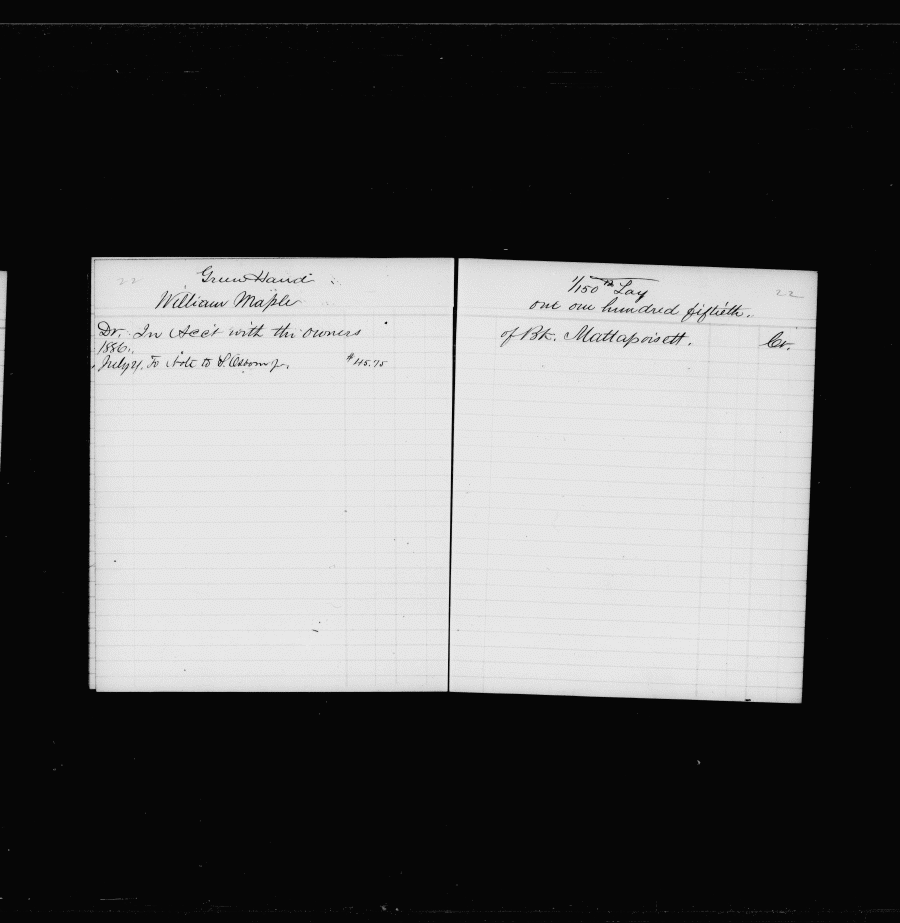 22
Green Hand
William Maple
Dr. In Acct with the owners
1886.
July 21. To Note to S. Osborn jr. $45.75
22
1/150th Lay
one one hundred fiftieth.
of Bk. Mattapoisett. Cr.